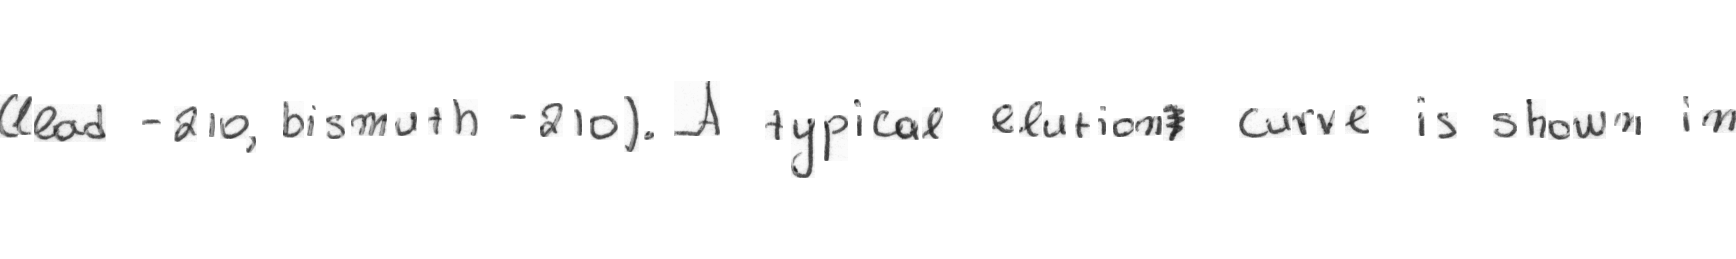 (lead -210, bismuth -210). A typical elution curve is shown in